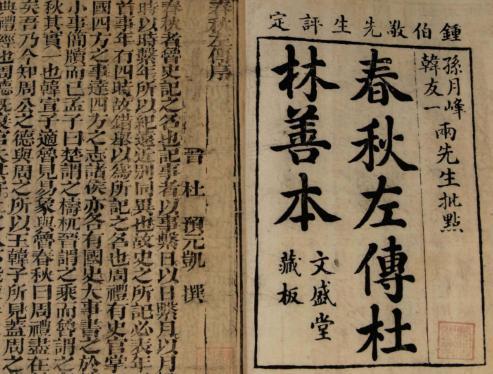 鍾伯敬先生評定
孫月峰
韓友一
兩先生批點
春秋左傳杜
林善本
文盛堂
藏板
春秋左傳序
晉 杜 預元凱 撰
春秋者魯史記之名也記事者以事繫日以日繫月以月
時以時繫年所以紀遠近別同異也故史之所記必表年
首事年有四時故錯舉以為所記之名也周禮有史官掌
國四方之事達四方之志諸侯亦各有國史大事書之於
小事簡牘而已孟子曰楚謂之檮杌晉謂之乘而魯謂之
秋其實一也韓宣子適魯見易象與魯春秋曰周禮盡在
矣吾乃今知周公之德與周之所以王韓子所見蓋周之
典禮經也周德既衰官失其守